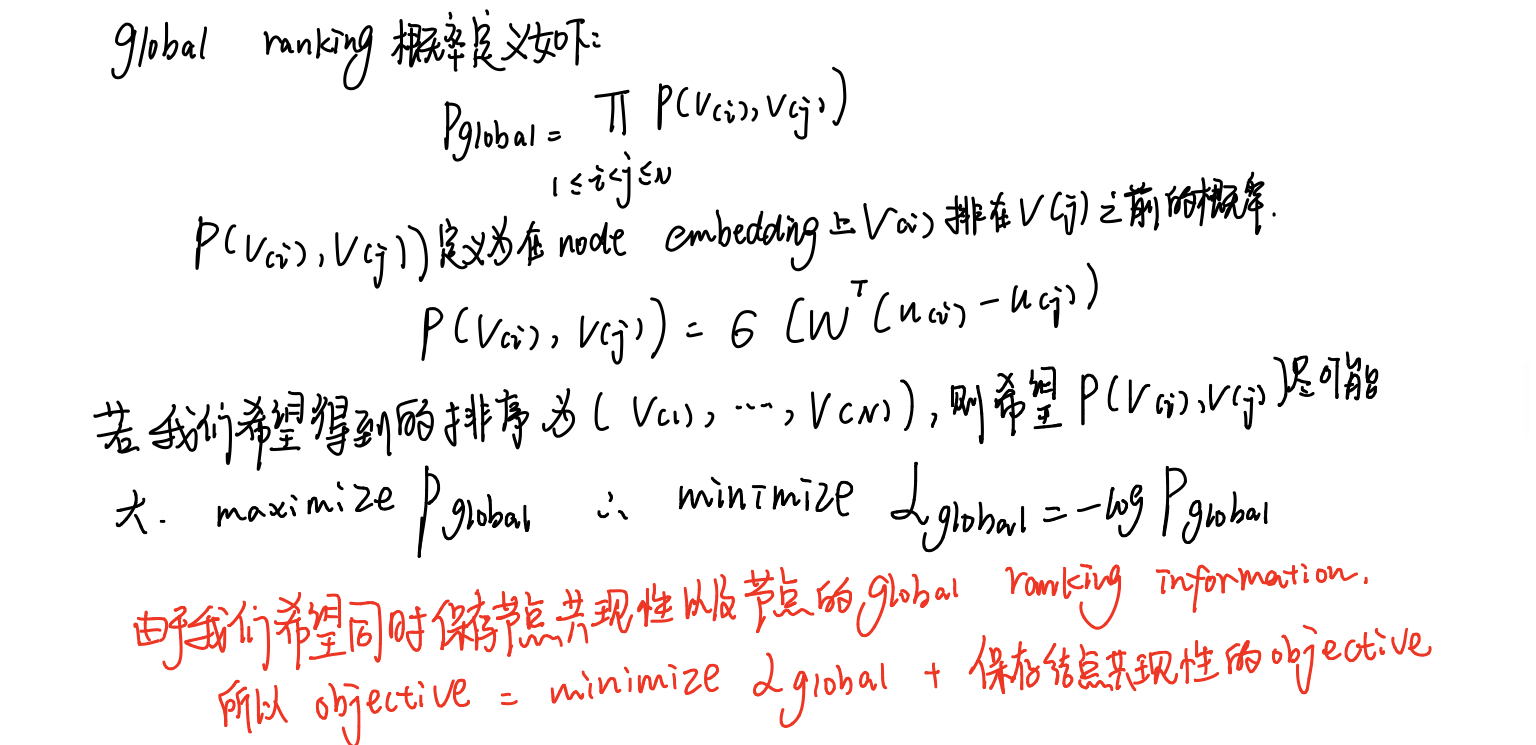 global ranking 概率定义如下:
P_global = ∏ P(V(i), V(j))
1≤i<j≤N
P(V(i), V(j))定义为在 node embedding上V(i)排在V(j)之前的概率.
P(V(i), V(j)) = σ (W^T(u(i) - u(j))
若我们希望得到的排序为 ( V(1), ..., V(N) ), 则希望 P(V(i), V(j))尽可能
大. maximize P_global ∴ minimize L_global = -log P_global
由于我们希望同时保存节点共现性以及节点的global ranking information.
所以 objective = minimize L_global + 保存结点共现性的objective